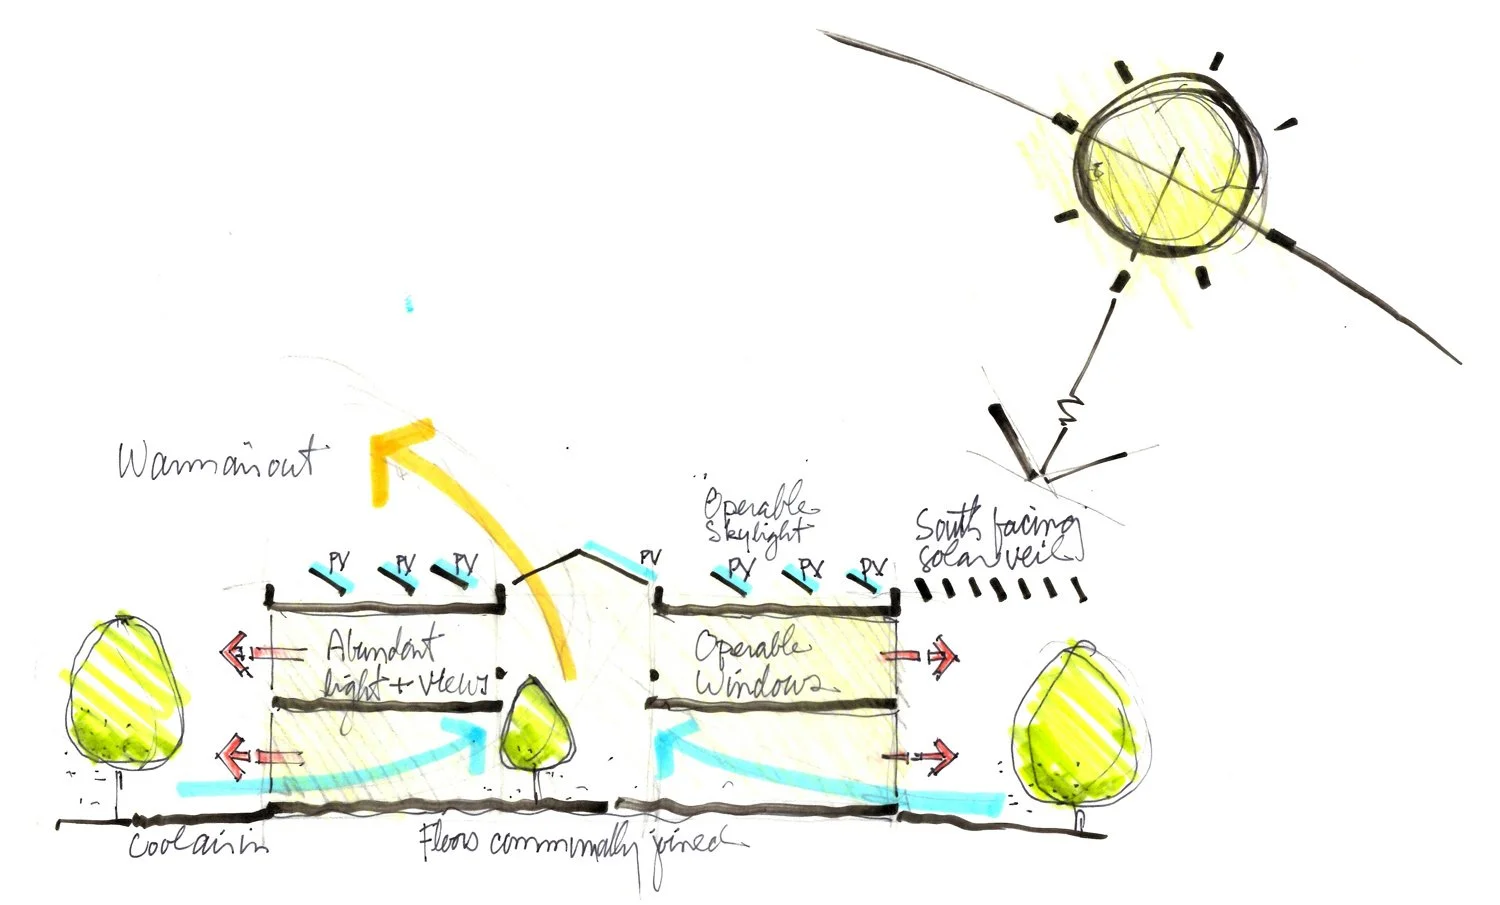 Warm air out
Operable
Skylight
South facing
solar veil
PV
PV
PV
PV
PV
PV
PV
Abundant
light + views
Operable
Windows
Cool air in
Floors communally joined